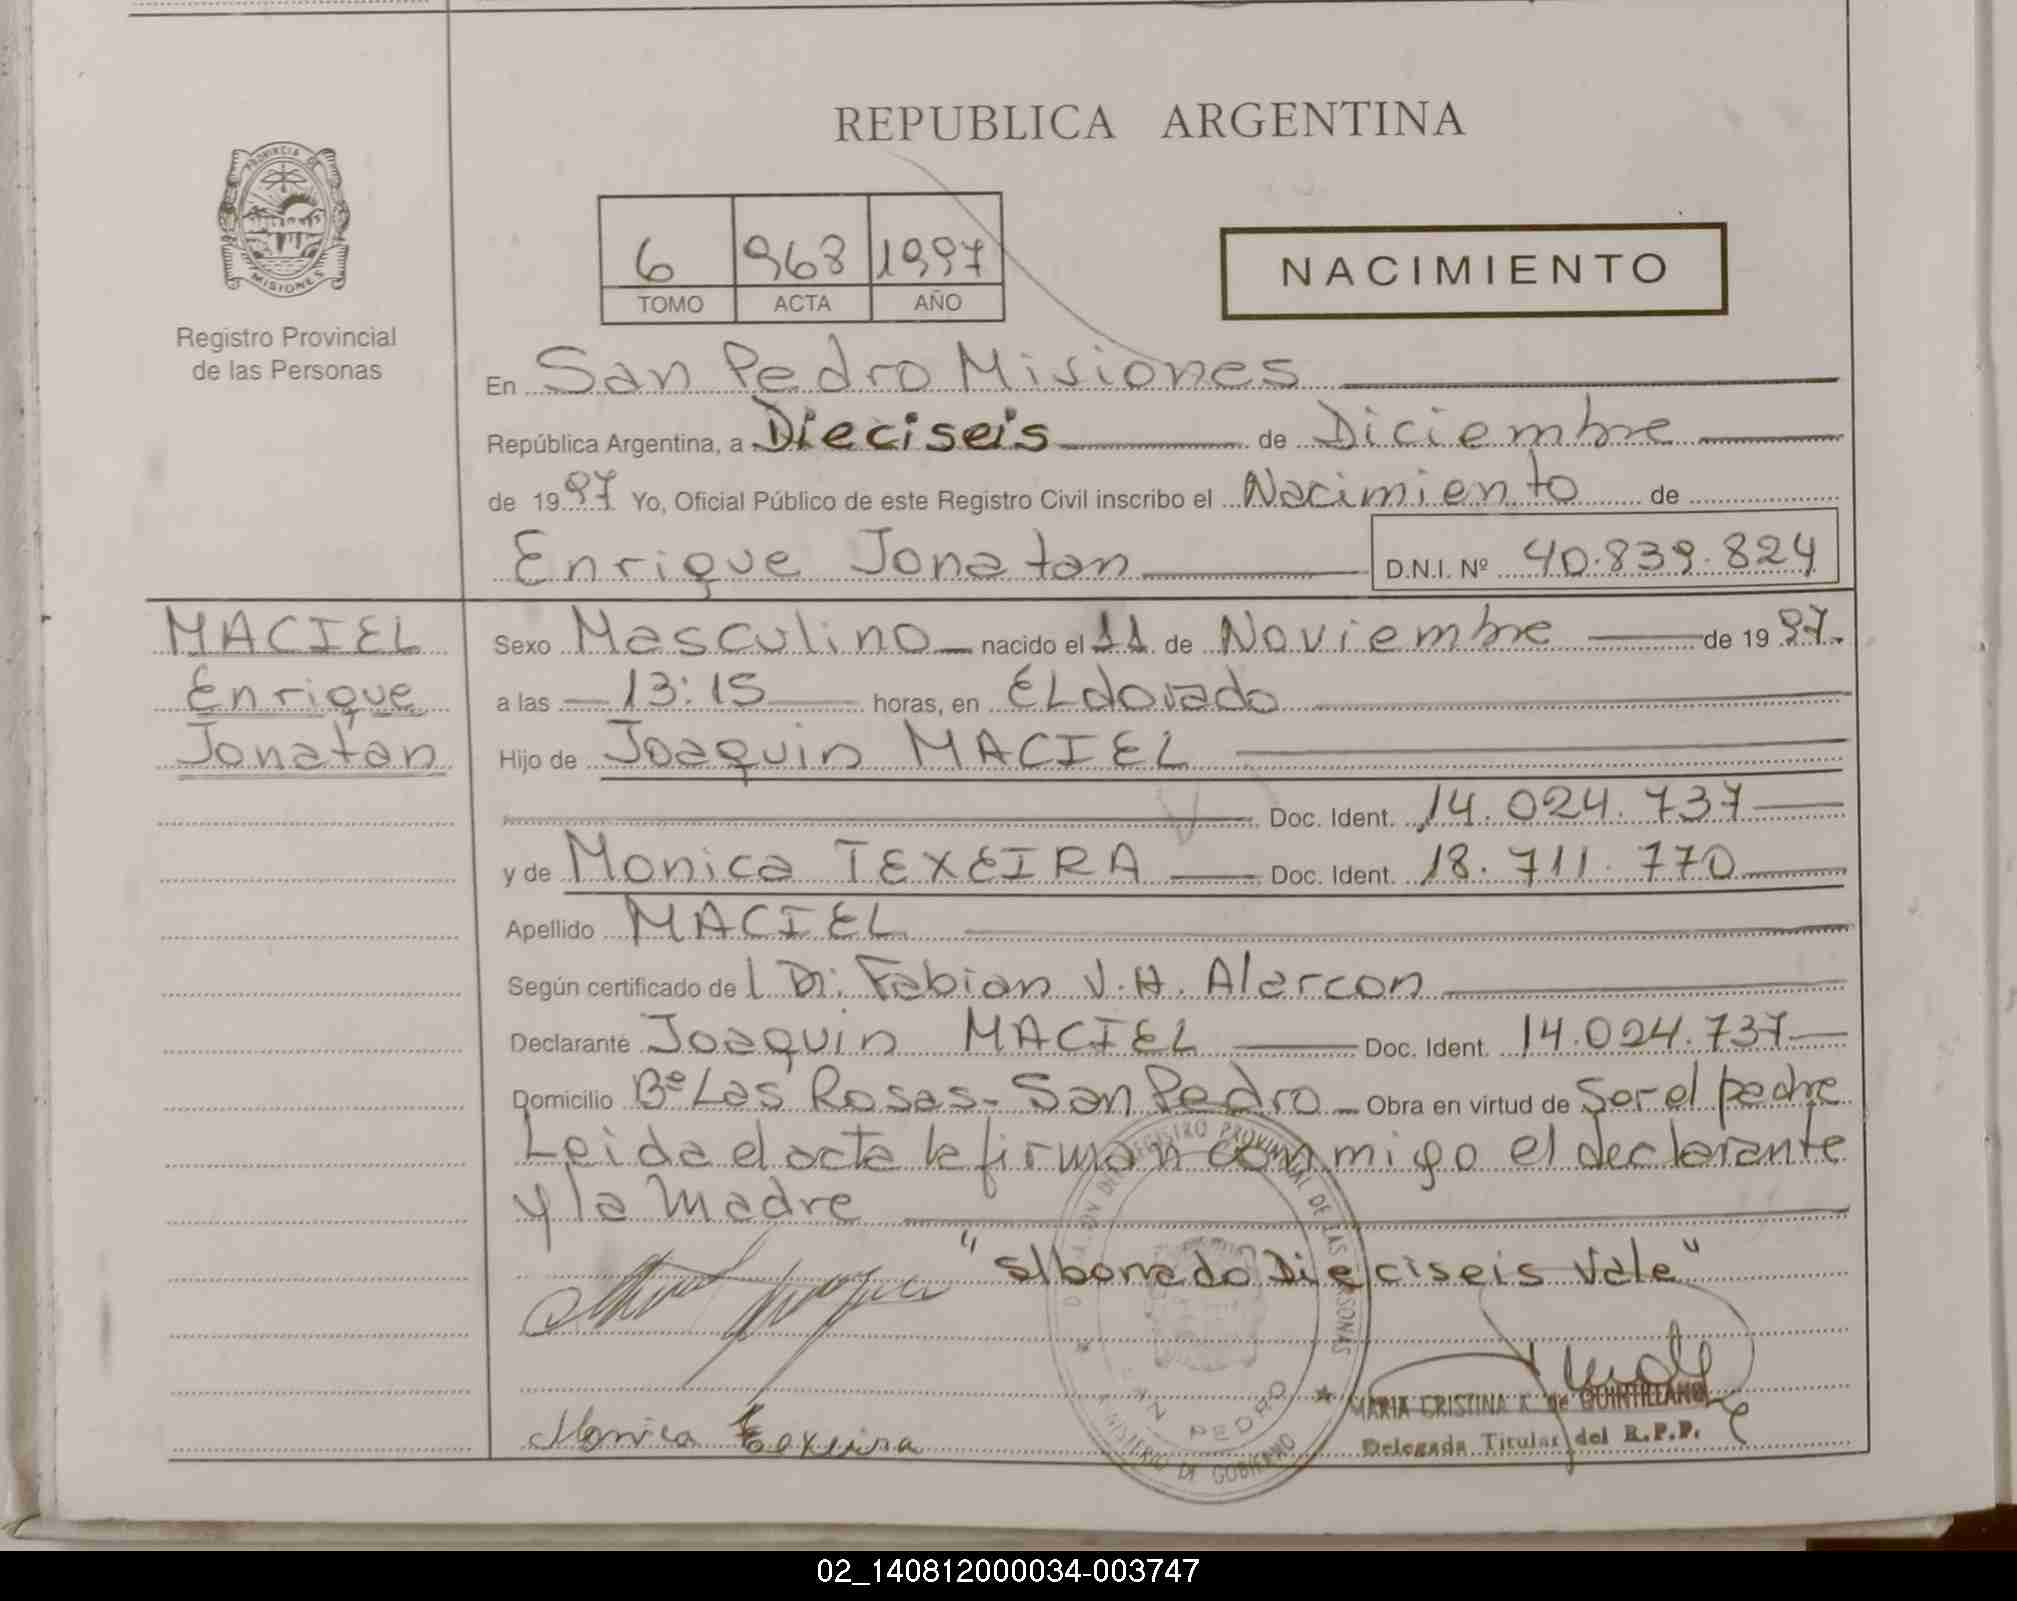 REPUBLICA ARGENTINA
PROVINCIA DE
MISIONES
Registro Provincial
de las Personas
6 968 1997
TOMO ACTA AÑO
NACIMIENTO
En San Pedro Misiones
República Argentina, a Dieciseis de Diciembre
de 1997 Yo, Oficial Público de este Registro Civil inscribo el Nacimiento de
Enrique Jonatan D.N.I. Nº 40.839.824
MACIEL
Enrique
Jonatan
Sexo Masculino nacido el 11 de Noviembre de 1997.
a las 13:15 horas, en ELdorado
Hijo de Joaquin MACIEL
Doc. Ident. 14.024.737
y de Monica TEXEIRA Doc. Ident. 18.711.770
Apellido MACIEL
Según certificado de l Dr. Fabian V.H. Alarcon
Declarante Joaquin MACIEL Doc. Ident. 14.024.737
Domicilio Bº Las Rosas - San Pedro Obra en virtud de Ser el padre
Leida el acta la firman conmigo el declarante
y la Madre
"s/borrado Dieciseis Vale"
Monica Texeira
REGISTRO PROVINCIAL DE LAS PERSONAS
PEDRO
MINISTERIO DE GOBIERNO
MARIA CRISTINA K de QUINTILLANO
Delegada Titular del R.P.P.
02_140812000034-003747